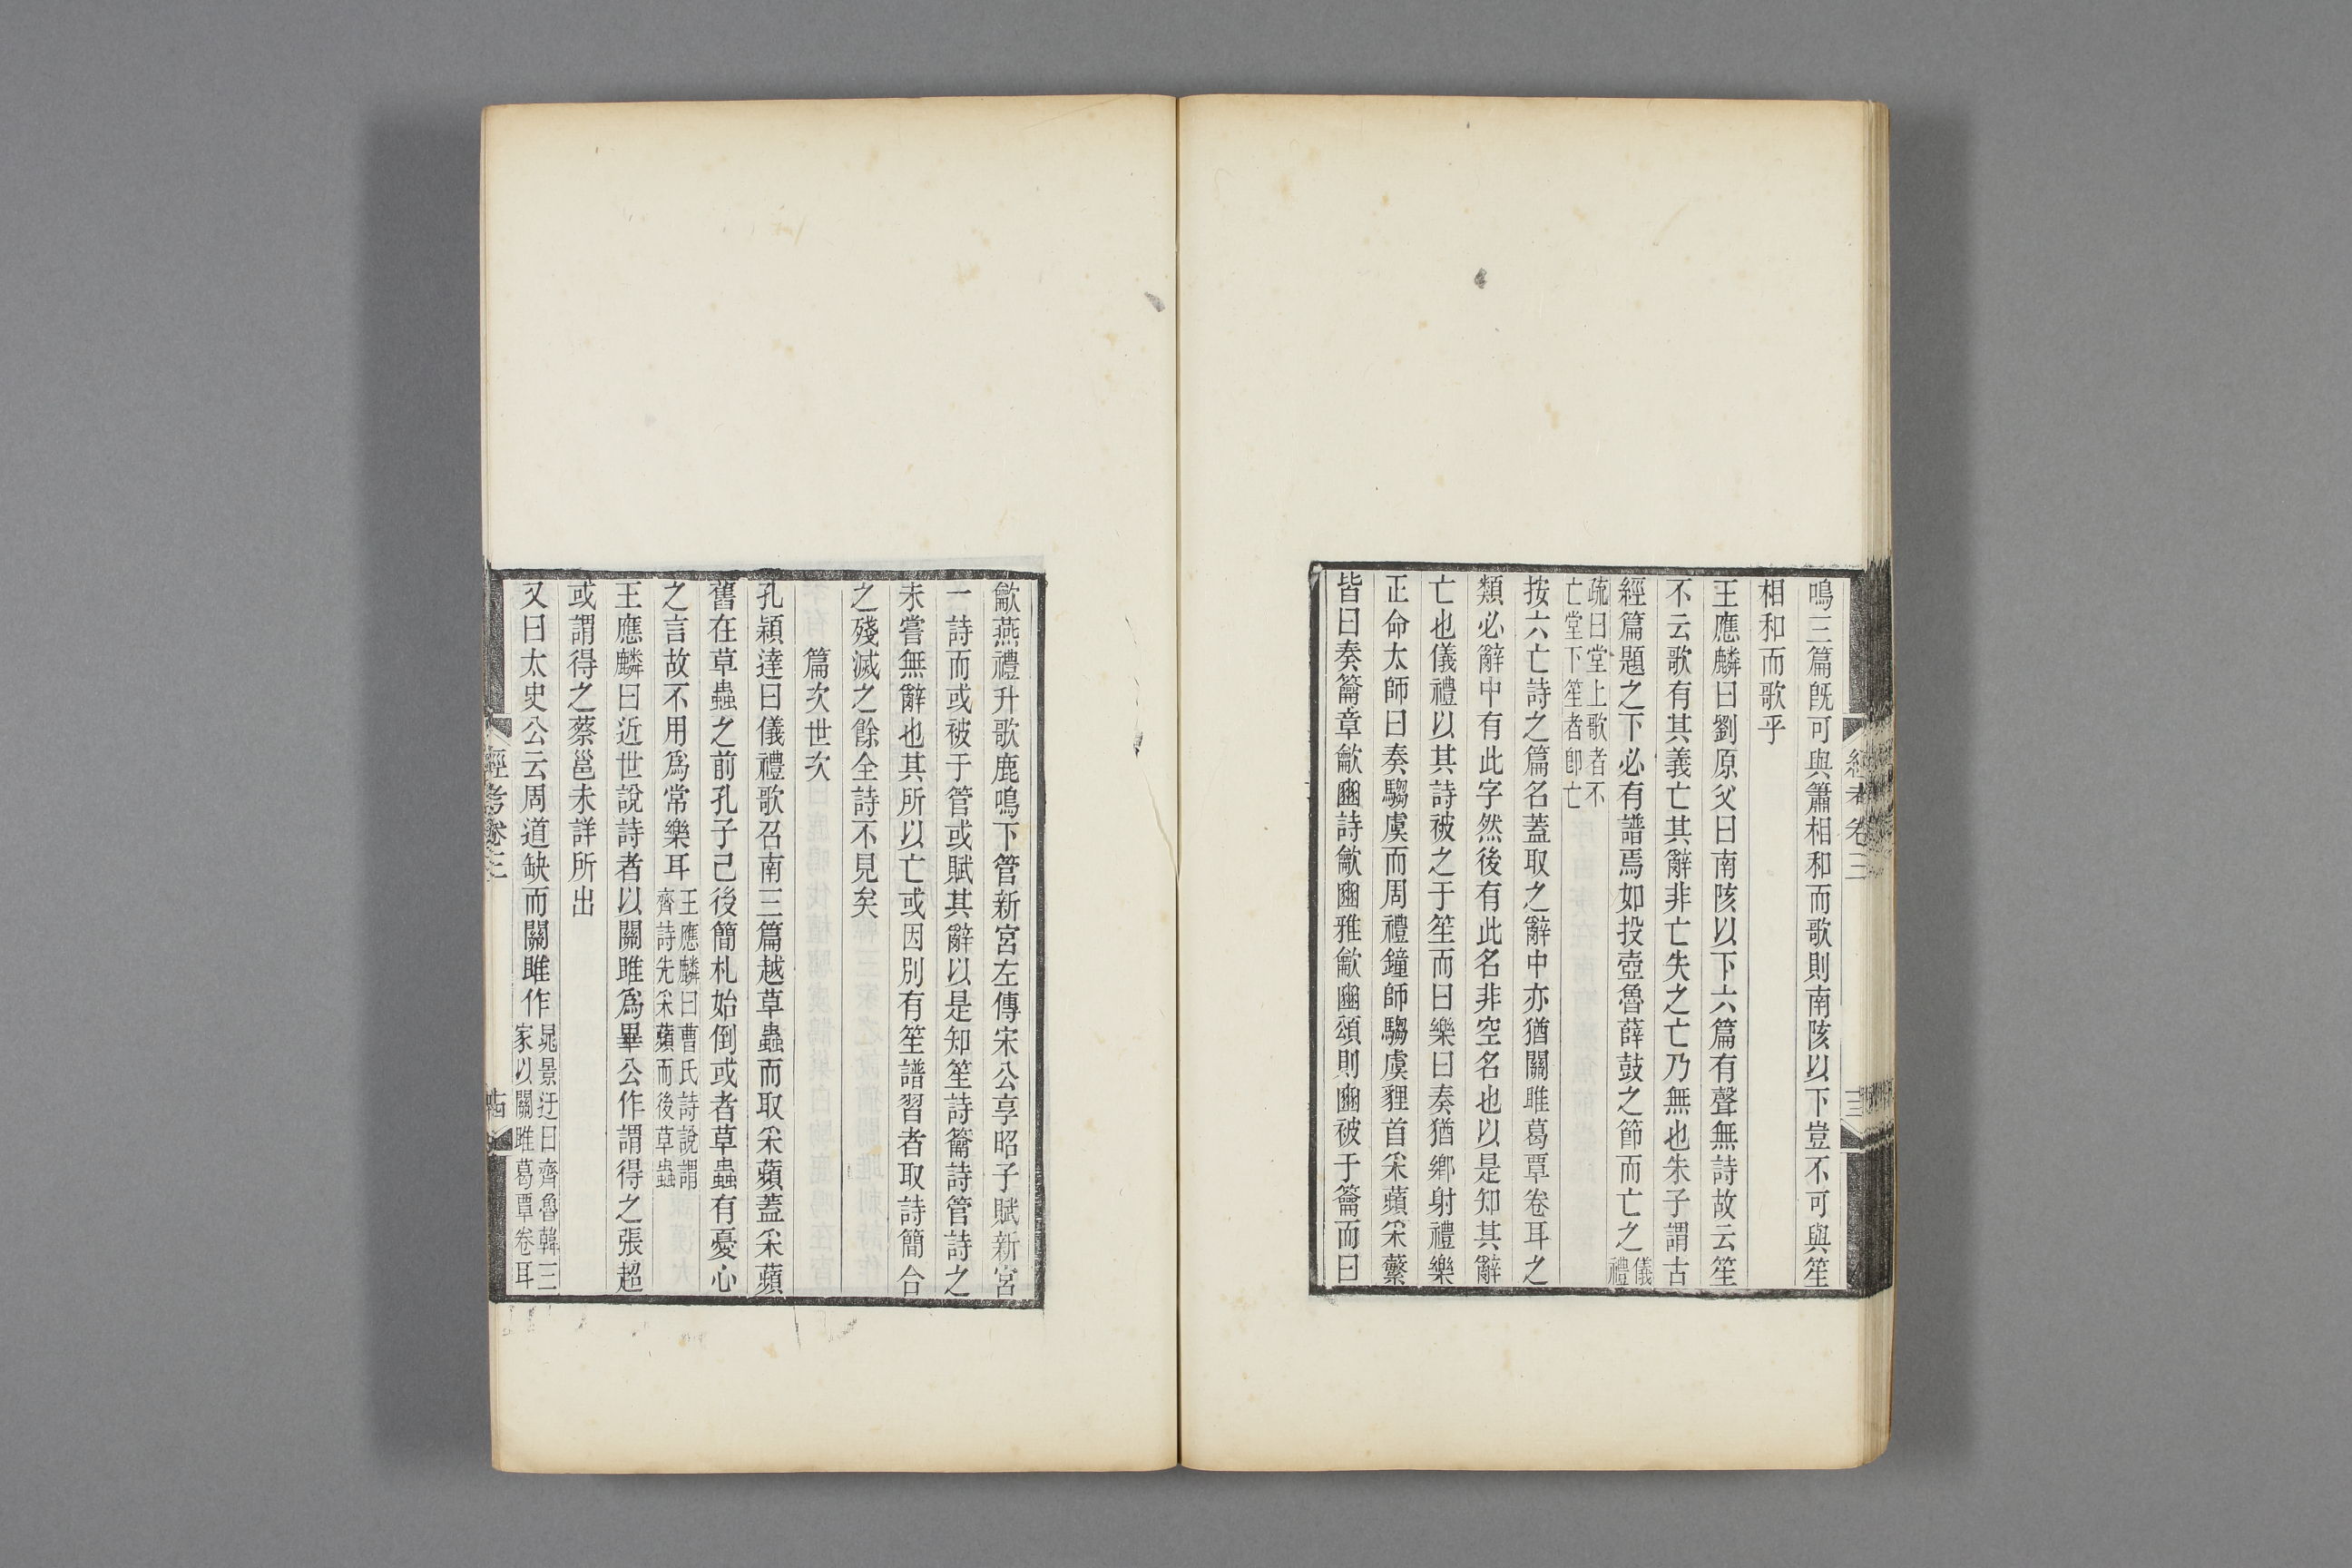 鳴三篇旣可與簫相和而歌則南陔以下豈不可與笙
相和而歌乎
王應麟曰劉原父曰南陔以下六篇有聲無詩故云笙
不云歌有其義亡其辭非亡失之亡乃無也朱子謂古
經篇題之下必有譜焉如投壺魯薛鼓之節而亡之儀禮
疏曰堂上歌者不亡堂下笙者卽亡
按六亡詩之篇名蓋取之辭中亦猶關雎葛覃卷耳之
類必辭中有此字然後有此名非空名也以是知其辭
亡也儀禮以其詩被之于笙而曰樂曰奏猶鄉射禮樂
正命太師曰奏騶虞而周禮鐘師騶虞貍首采蘋采蘩
皆曰奏籥章龡豳詩龡豳雅龡豳頌則豳被于籥而曰
經考卷三
龡燕禮升歌鹿鳴下管新宮左傳宋公享昭子賦新宮
一詩而或被于管或賦其辭以是知笙詩籥詩管詩之
未嘗無辭也其所以亡或因別有笙譜習者取詩簡合
之殘滅之餘全詩不見矣
篇次世次
孔穎達曰儀禮歌召南三篇越草蟲而取采蘋蓋采蘋
舊在草蟲之前孔子已後簡札始倒或者草蟲有憂心
之言故不用爲常樂耳王應麟曰曹氏詩說謂齊詩先采蘋而後草蟲
王應麟曰近世說詩者以關雎爲畢公作謂得之張超
或謂得之蔡邕未詳所出
又曰太史公云周道缺而關雎作晁景迂曰齊魯韓三家以關雎葛覃卷耳
經考卷三